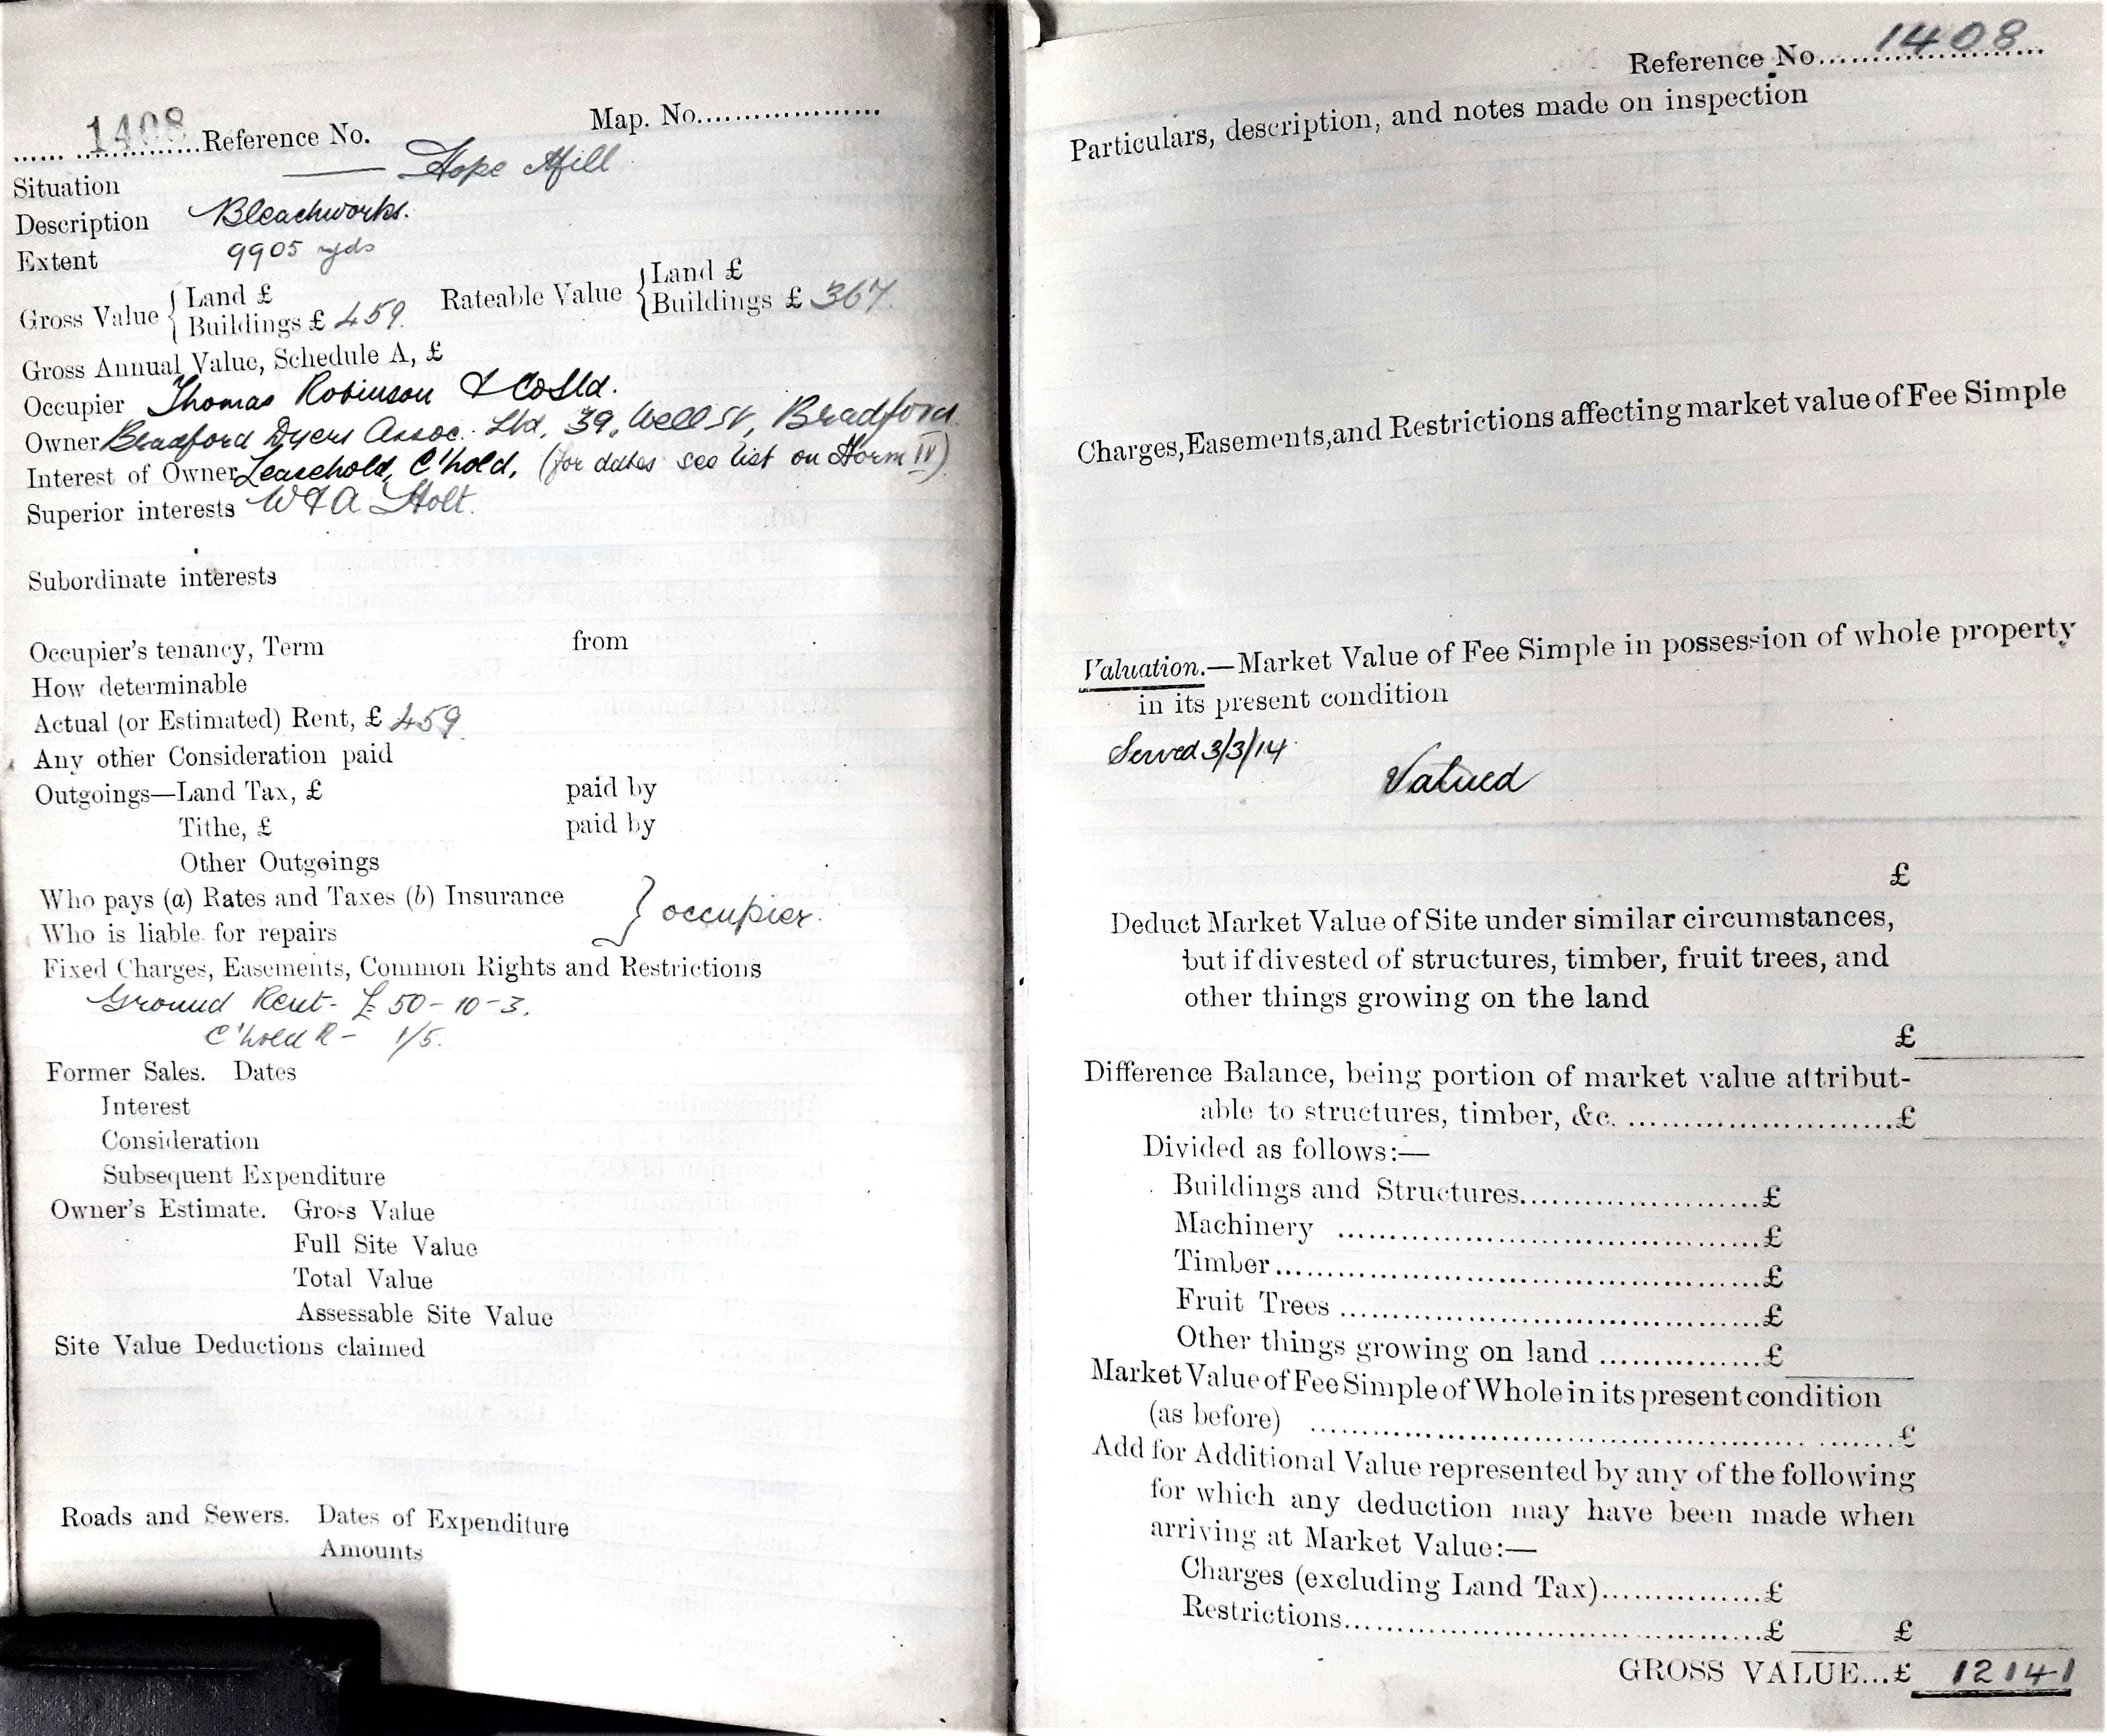 1408 Reference No. Map. No.
Situation — Hope Mill
Description Bleachworks.
Extent 9905 yds
Gross Value { Land £ Rateable Value { Land £
Buildings £ 459. Buildings £ 367.
Gross Annual Value, Schedule A, £
Occupier Thomas Robinson & Co Ltd.
Owner Bradford Dyers Assoc. Ltd, 39, Well St, Bradford.
Interest of Owner Leasehold, C'hold, (for dates see list on Form IV)
Superior interests W & A Holt.
Subordinate interests
Occupier's tenancy, Term from
How determinable
Actual (or Estimated) Rent, £ 459
Any other Consideration paid
Outgoings—Land Tax, £ paid by
Tithe, £ paid by
Other Outgoings
Who pays (a) Rates and Taxes (b) Insurance } occupier.
Who is liable for repairs
Fixed Charges, Easements, Common Rights and Restrictions
Ground Rent - £50-10-3.
C'hold R - 1/5.
Former Sales. Dates
Interest
Consideration
Subsequent Expenditure
Owner's Estimate. Gross Value
Full Site Value
Total Value
Assessable Site Value
Site Value Deductions claimed
Roads and Sewers. Dates of Expenditure
Amounts
Reference No. 1408
Particulars, description, and notes made on inspection
Charges, Easements, and Restrictions affecting market value of Fee Simple
Valuation.—Market Value of Fee Simple in possession of whole property
in its present condition
Served 3/3/14
Valued
£
Deduct Market Value of Site under similar circumstances,
but if divested of structures, timber, fruit trees, and
other things growing on the land
£
Difference Balance, being portion of market value attribut-
able to structures, timber, &c. £
Divided as follows:—
Buildings and Structures £
Machinery £
Timber £
Fruit Trees £
Other things growing on land £
Market Value of Fee Simple of Whole in its present condition
(as before) £
Add for Additional Value represented by any of the following
for which any deduction may have been made when
arriving at Market Value:—
Charges (excluding Land Tax) £
Restrictions £ £
GROSS VALUE...£ 12141